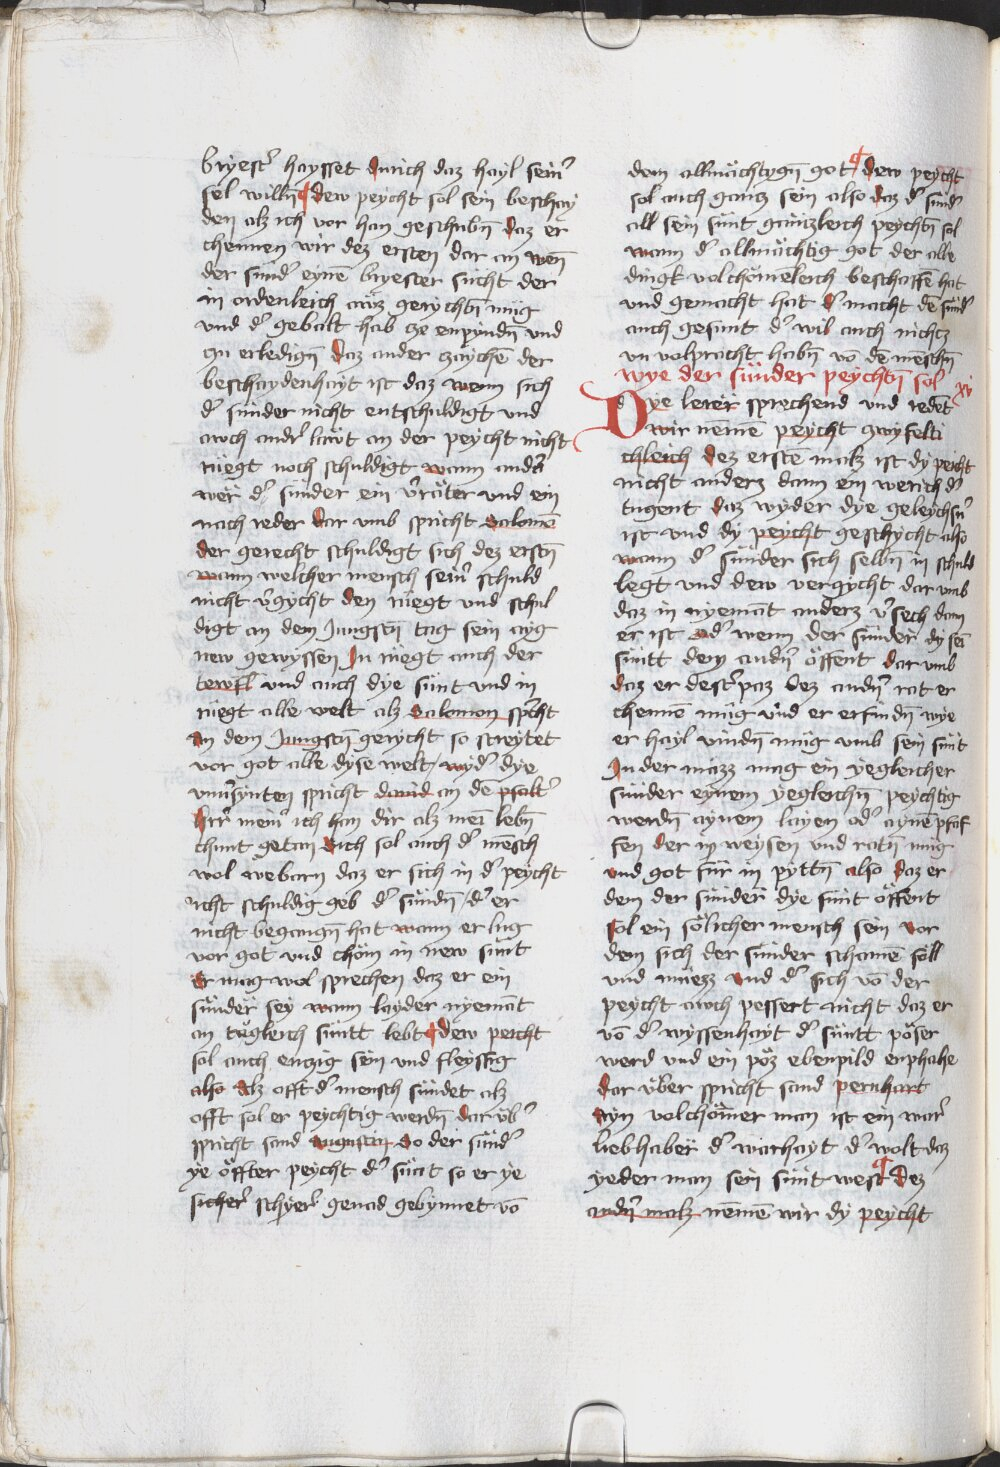 bryest̄ haysset durich daz hayl sein̄
sel willn̄ ¶ dew peycht sol sein beschay
den alz ich vor han geschribn̄ Daz er
chennen wir dez ersten dar an wen̄
der sund̄ eynē bryester sücht der
in ordenleich auz gerychtn̄ müg
vnd d̄ gebalt hab cze enpyndn̄ vnd
zu erledign̄ Daz ander czaychē der
beschaydenhayt ist daz wenn sich
d̄ sünder nicht entschuldigt vnd
auch andr̄ läwt an der peycht nicht
rüegt noch schuldigt wann anders
wer d̄ sünder ein v̄räter vnd ein
nach reder Dar vmb spricht Salomē
Der gerecht schuldigt sich dez erstn̄
wann welcher mensch sein̄ schuld
nicht v̄gycht den rüegt vnd schul
digt an dem Jungstn̄ tag sein ayg
new gewyssen In rüegt auch der
tewfl vnd auch dye sünt vnd in
rüegt alle welt alz Salomon sp̄cht
An dem Jungstn̄ gerycht so streytet
vor got alle dyse welt wyd̄ dye
vnu̇synten spricht dauid an dē psalt̄
Hr̄r mein̄ ich han dir alz mein lebn̄
chunt getan Auch sol auch d̄ mēsch
wol webarn daz er sich in d̄ peycht
icht schuldig geb d̄ sündn̄ / d̄ er
nicht begangn̄ hat wann er lüg
vor got vnd chöm in new sünt
Er mag wol sprechen daz er ein
sünder sey wann layder nyemāt
an tägleich süntt lebt ¶ dew peicht
sol auch enczig sein vnd fleyssig
also Alz offt d̄ mensch sündet alz
offt sol er peychtig werdn̄ Dar üb̄
spricht sand Augustin So der sünd̄
ye öffter peycht d̄ sünt so er ye
sicher̄ schyer̄ genad gebynnet vō
dem allmächtygn̄ got ¶ Dew peycht
sol auch gancz sein also daz d̄ sünd̄
all sein sünt gänczleich peychtn̄ sol
wann d̄ allmächtig got der alle
dingk volchömēleich beschaffē hat
vnd gemacht hat D̄ macht dē sünd̄
auch gesunt d̄ wil auch nichcz
vn volpracht habn̄ vō dē menschn̄
wye der sünder peychtn̄ sol xv
Dye lerer sprechend vnd redēt
wir nēmē peycht czwyfelti
chleich Dez erstē malz ist dy peicht
nicht anderz dann ein werich d̄
tugent Daz wyder dye geleychsn̄
ist vnd dy peycht geschycht also
wann d̄ sünder sich selbn̄ in schuld
legt vnd dew vergycht dar vmb
daz in nyemāt anderz v̄sech dann
er ist od̄ wenn der sünder dy sei
süntt dem andn̄ öffent dar vmb
Daz er dest̄ paz Dez andn̄ rat er
chennē müg vnd er erfindn̄ wye
er hayl vindn̄ müg vmb sein sünt
In der mazz mag ein yegleicher
sünder eynem yegleichn̄ peychtig
werdn̄ aynem layen od̄ aynē pfaf
fen der in weysen vnd ratn̄ müg
vnd got für in pyttn̄ also daz er
dem der sünder dye sünt öffent
Sol ein sölicher mensch sein vor
dem sich der sünder schamē söll
vnd müezz vnd d̄ sich vō der
peycht auch pessert nicht daz er
vō d̄ wyssenhayt d̄ süntt pöser
werd vnd ein pöz ebenpild enphahe
Dar über spricht sand pernhart
Ayn volchömer man ist ein war̄
liebhaber d̄ warhayt d̄ wolt daz
yeder man sein sünt west ¶ Dez
andn̄ malz nēmē wir dy peycht